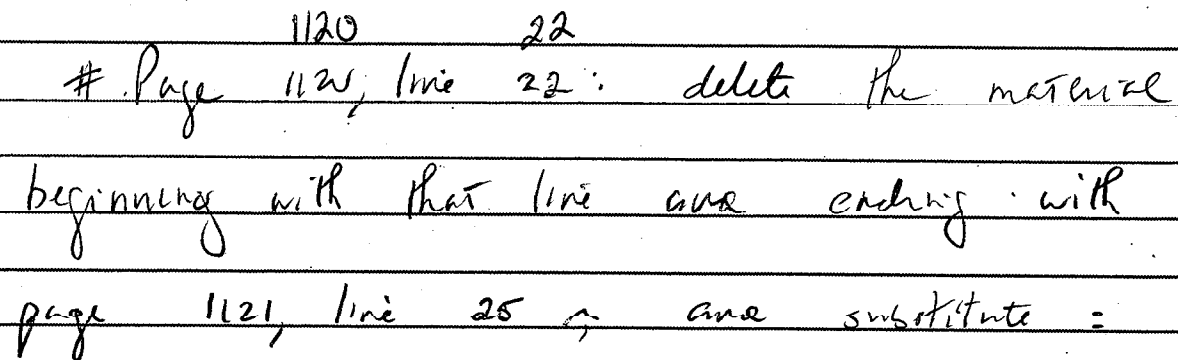 1120 22
#. Page 1120, line 22: delete the material
beginning with that line and ending with
page 1121, line 25 and substitute: